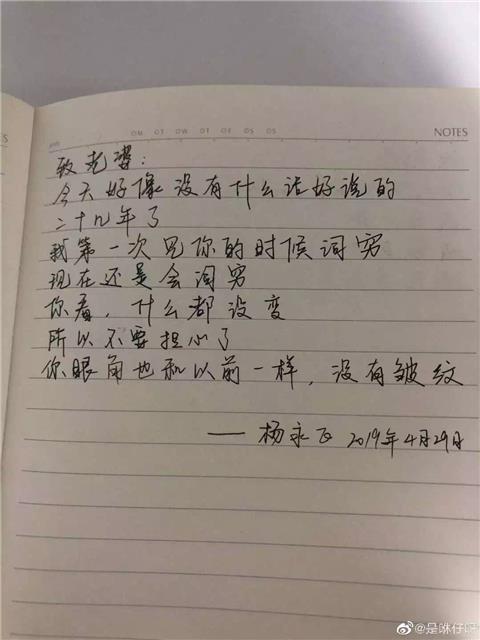 OM OT OW OT OF OS OS
NOTES
致老婆：
今天好像没有什么话好说的
二十九年了
我第一次见你的时候词穷
现在还是会词穷
你看，什么都没变
所以不要担心了
你眼角也和以前一样，没有皱纹
——杨永正 2019年4月29日
@是咻仔呀